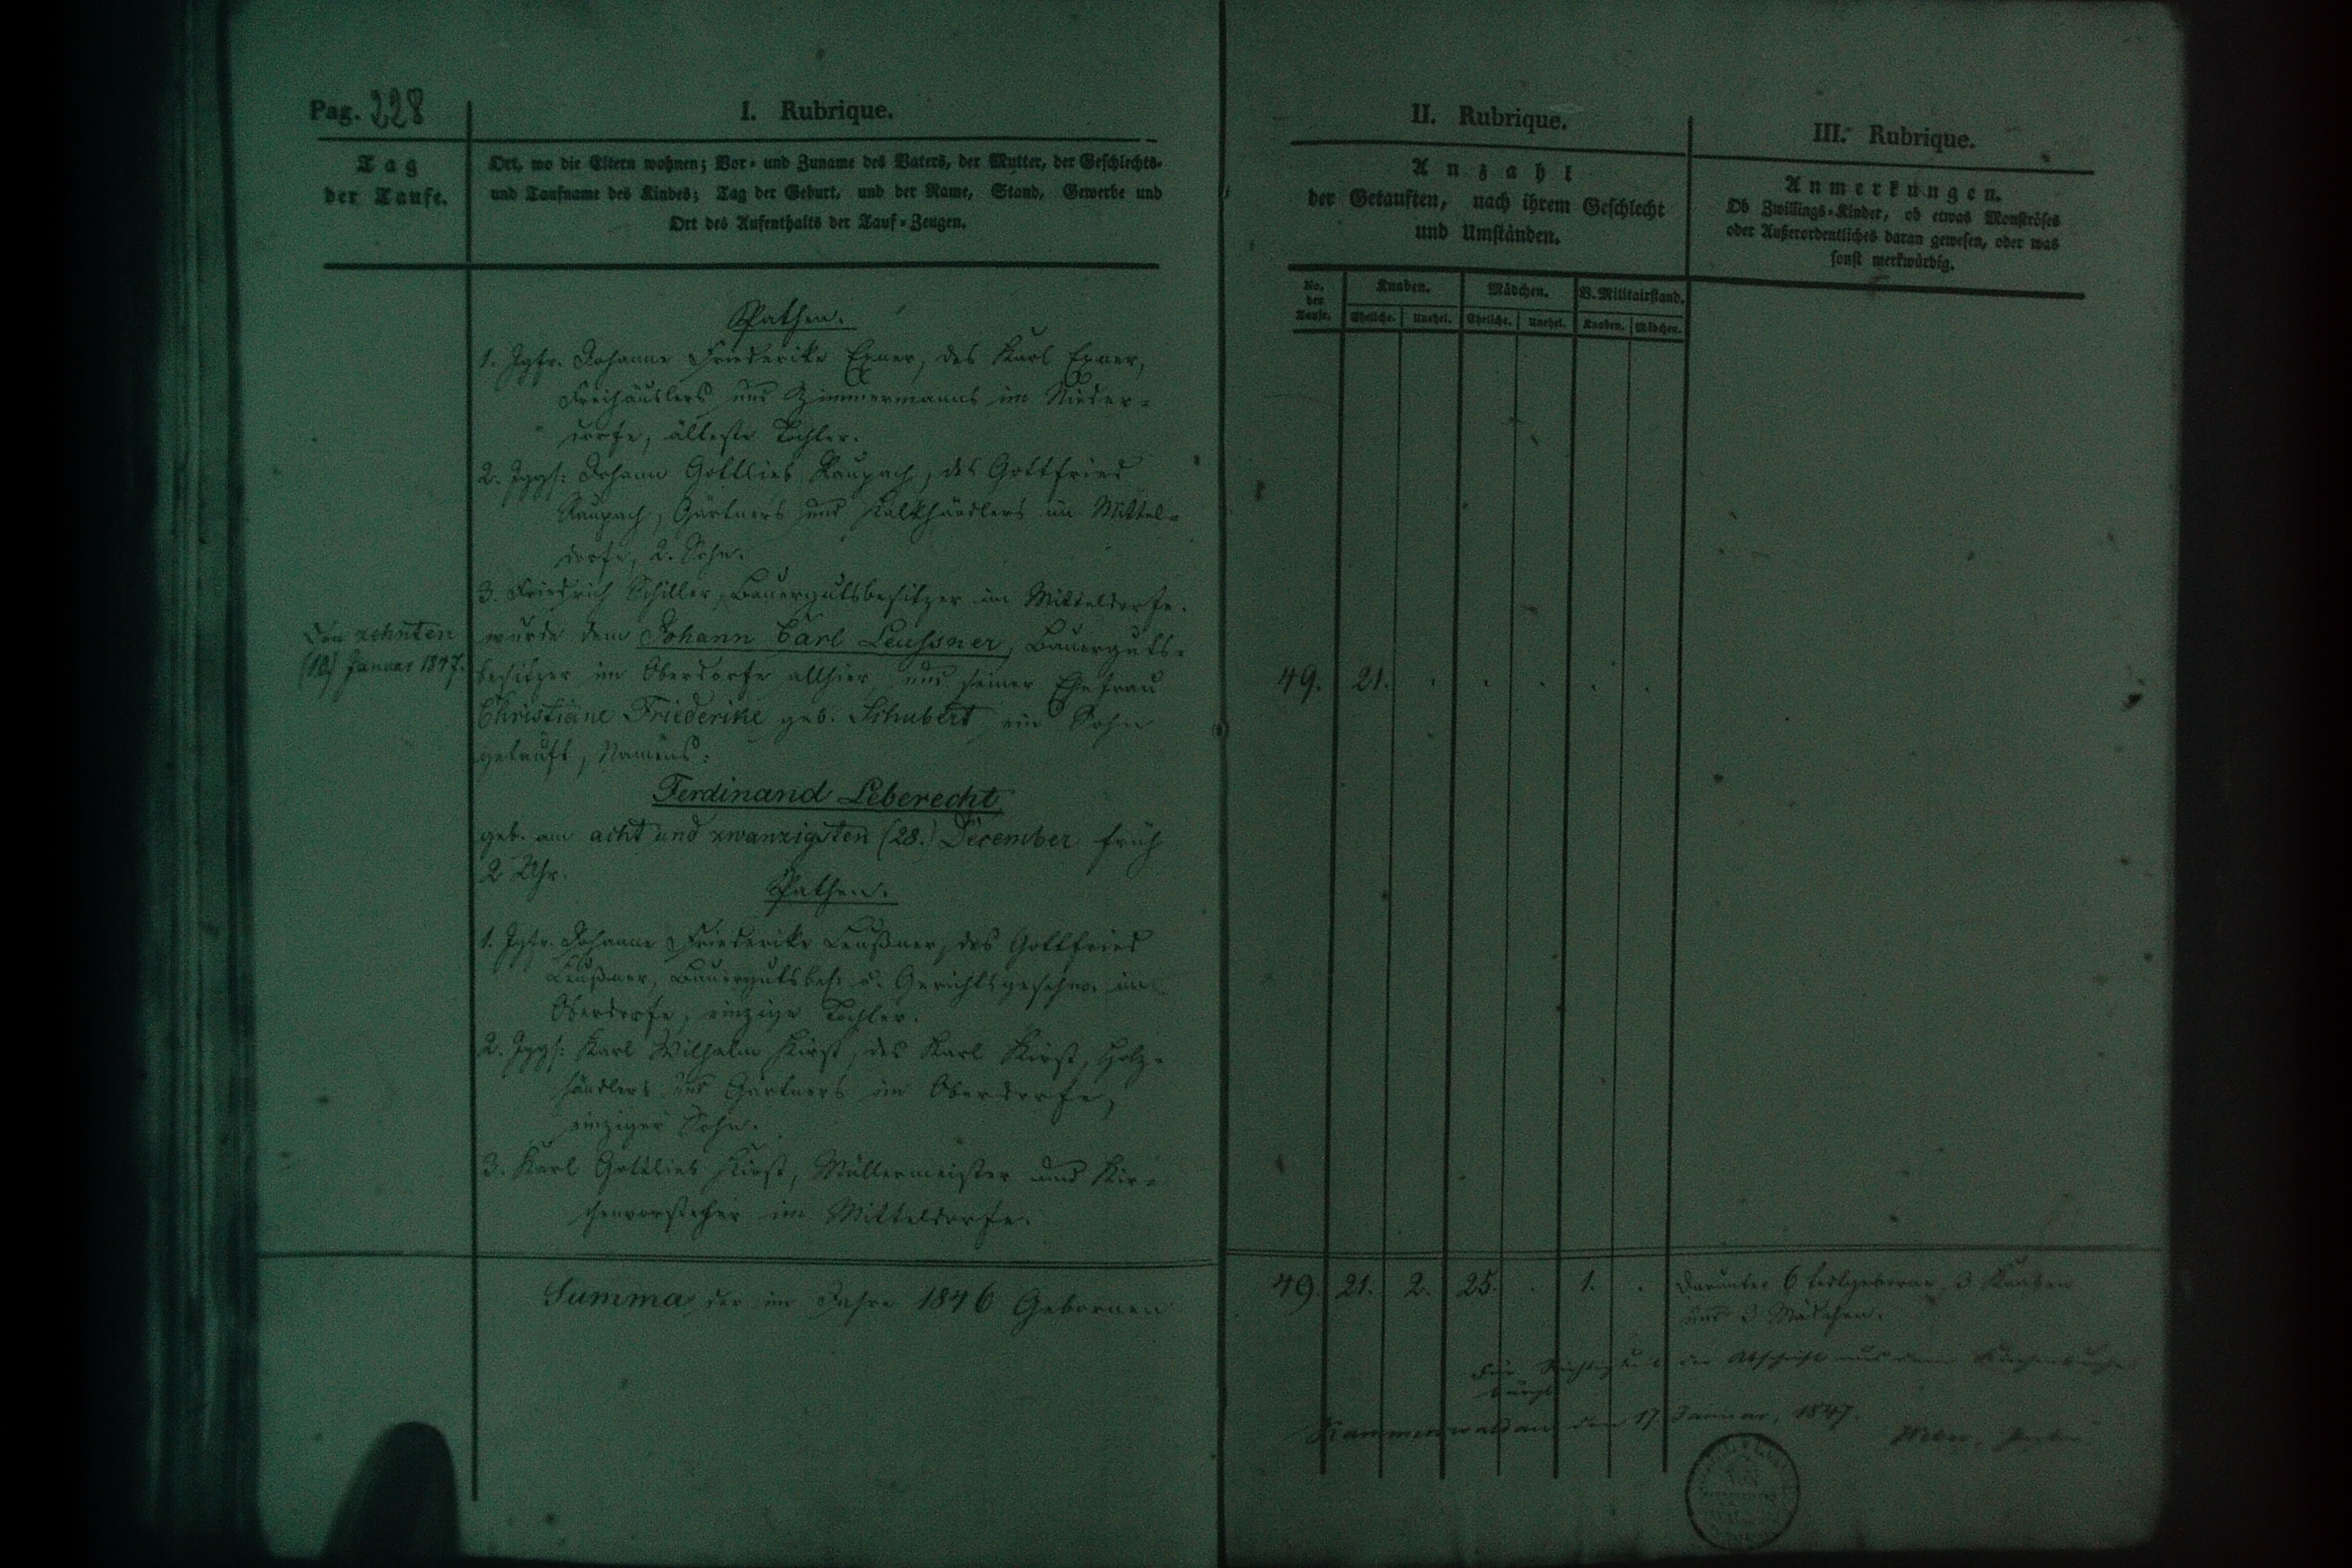 Pag. 228
I. Rubrique.
Tag
der Taufe.
Ort, wo die Eltern wohnen; Vor- und Zuname des Vaters, der Mutter, der Geschlechts-
und Taufname des Kindes; Tag der Geburt, und der Name, Stand, Gewerbe und
Ort des Aufenthalts der Tauf-Zeugen.
Pathen.
1. Jgfr. Johanne Friederike Exner, des Karl Exner,
Freihäuslers und Zimmermanns im Nieder-
dorfe, älteste Tochter.
2. Jggs: Johann Gottlieb Raupach, des Gottfried
Raupach, Gärtners und Kalkhändlers im Mittel-
dorfe, 2. Sohn.
3. Friedrich Schiller, Bauergutsbesitzer im Mitteldorfe.
Den zehnten
(10) Januar 1847.
wurde dem Johann Carl Leussner, Bauerguts-
besitzer im Oberdorfe allhier und seiner Ehefrau
Christiane Friederike geb. Schubert ein Sohn
getauft, Namens:
Ferdinand Leberecht
geb. am acht und zwanzigsten (28.) December früh
2 Uhr.
Pathen.
1. Jgfr. Johanne Friederike Leußner, des Gottfried
Leußner, Bauergutsbes. u. Gerichtsgeschw. im
Oberdorfe, einzige Tochter.
2. Jggs: Karl Wilhelm Hirst, des Karl Hirst, Holz-
händlers und Gärtners im Oberdorfe,
einziger Sohn.
3. Karl Gottlieb Hirst, Müllermeister und Kir-
chenvorsteher im Mitteldorfe.
Summa der im Jahre 1846 Gebornen
II. Rubrique.
Anzahl
der Getauften, nach ihrem Geschlecht
und Umständen.
III. Rubrique.
Anmerkungen.
Ob Zwillings-Kinder, ob etwas Monströses
oder Außerordentliches daran gewesen, oder was
sonst merkwürdig.
No. der Taufe.
Knaben.
Mädchen.
B. Militairstand.
Eheliche. Unehel. Eheliche. Unehel. Knaben. Mädchen.
49. 21. . . . . .
49. 21. 2. 25. . 1. . darunter 6 todtgeborne, 3 Knaben
und 3 Mädchen.
Für Richtigkeit der Abschrift aus dem Kirchenbuche
bürgt
Kammerswaldau den 17. Januar, 1847.